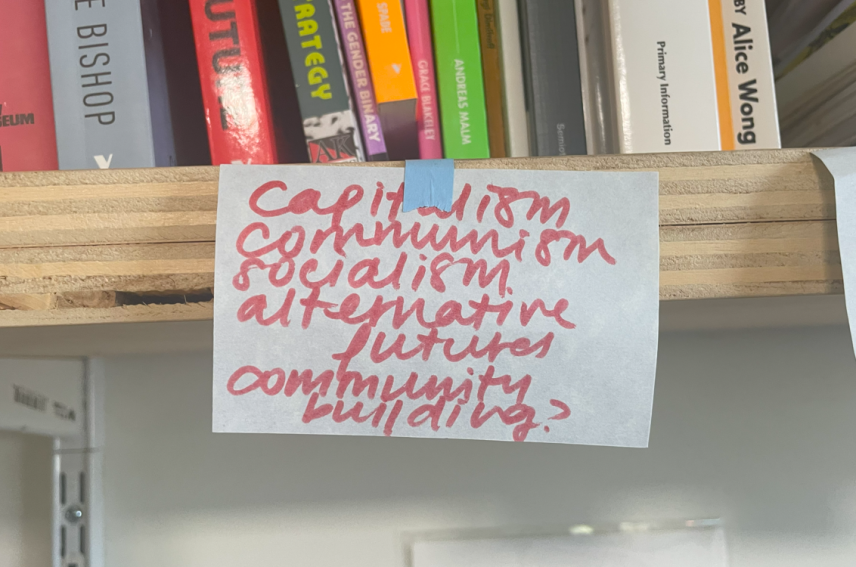 E BISHOP
UTURE
RATEGY
THE GENDER BINARY
SPADE
GRACE BLAKELEY
ANDREAS MALM
Primary Information
BY Alice Wong
capitalism
communism
socialism
alternative
futures
community
building?